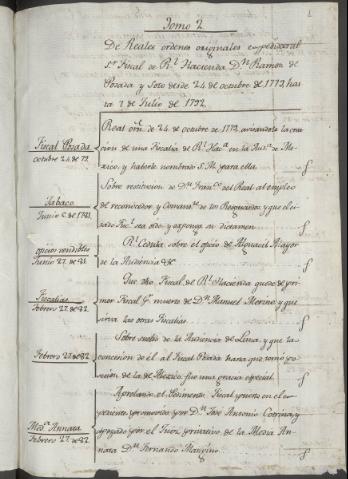 Tomo 2
De Reales ordenes originales expedidas al
S.or Fiscal de R.l Hacienda D.n Ramon de
Posada y Soto desde 24 de octubre de 1779, has
ta 7 de Julio de 1792.
Fiscal Posada
octubre 24 de 79
Real orn. de 24. de octubre de 1779, avisandole la
cion de una Fiscalia de R.l Haz.da en la Aud.a de Me
xico, y haberle nombrado S. M. para ella.
Tabaco
Junio 6 de 1781
Sobre restitucion de D.n Fran.co del Real al empleo
de reconocedor y Comand.te de los Resguardos, y que el
Fis.l sea oido y exponga su dictamen
oficios vendibles
Junio 27 de 81
R.l Cedula sobre el oficio de Alguacil Mayor
de la Audiencia &c
Fiscalias
Febrero 22 de 82
Que dho Fiscal de R.l Hacienda quede de pri
mer Fiscal p.r muerte de D.n Manuel Merino y que
sirva las otras Fiscalias
Febrero 22 de 82
Sobre sueldo de la Audiencia de Lima, y que la
concesion de él al Fiscal Posada hasta que tomó po
sesion de la de Mexico fue una gracia especial
Med.a Annata
Febrero 27 de 82
Aprobando el Pedimento Fiscal puesto en el ex
pediente promovido por D.n José Antonio Cotrina, y
apoyado por el Juez privativo de la Media An
nata D.n Fernando Mangino